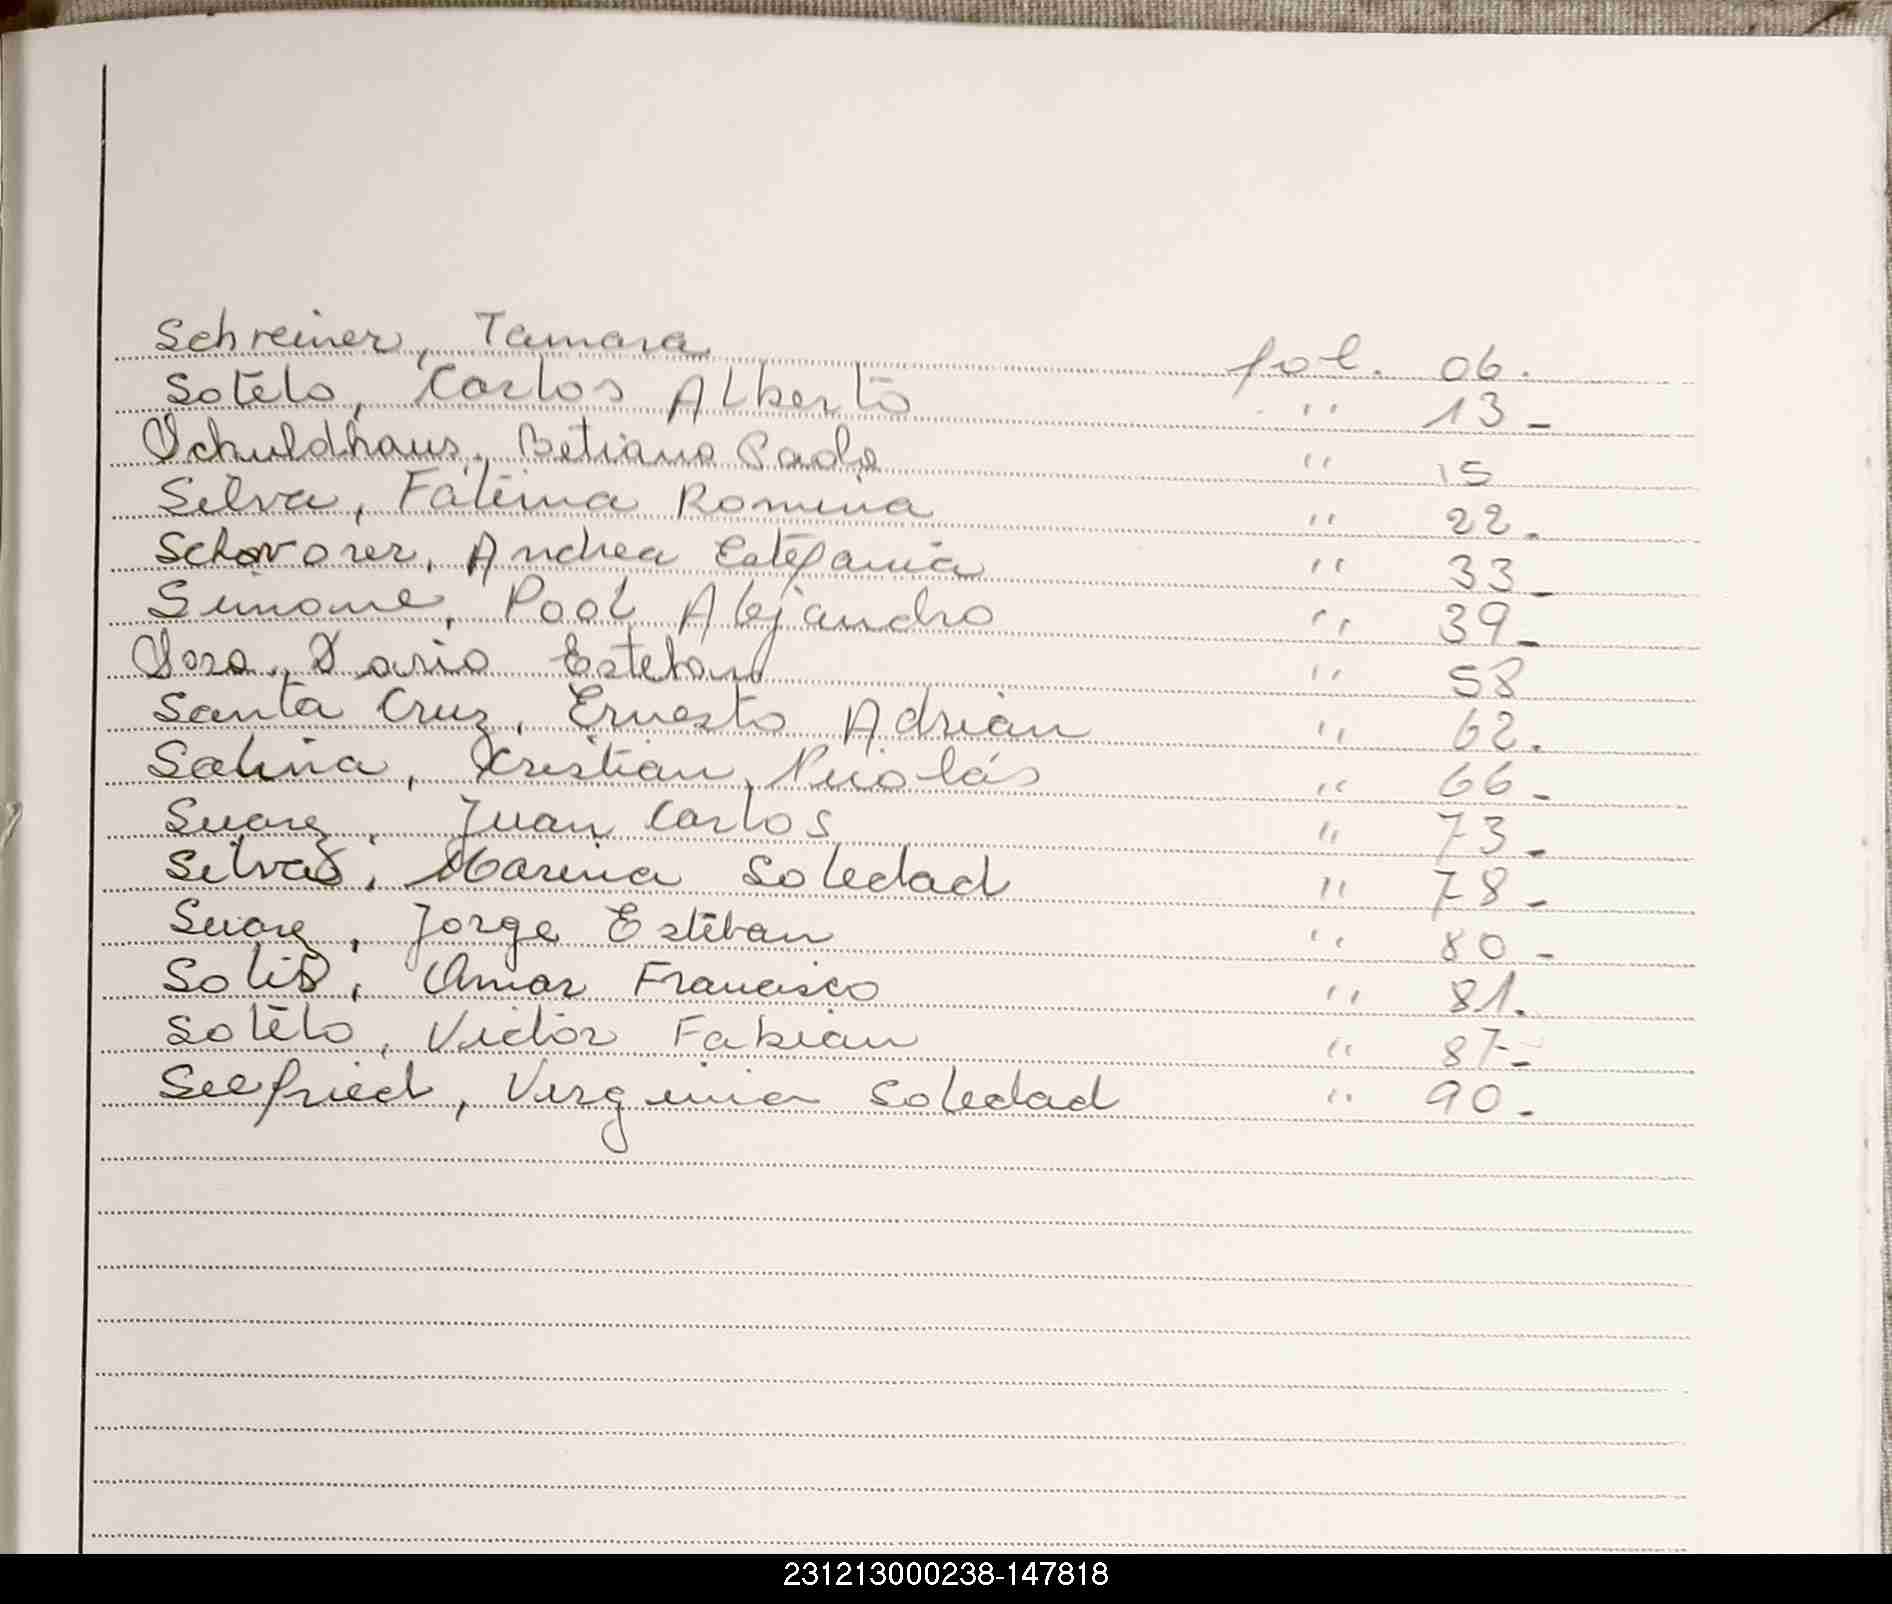 Schreiner, Tamara fol. 06.
Sotelo, Carlos Alberto " 13-
Schuldhaus, Betiana Paola " 15
Silva, Fatima Romina " 22.
Andrea Estefania " 33-
Simone, Pool Alejandro " 39-
Sosa, Dario Esteban " 58
Santa Cruz, Ernesto Adrián " 62.
Salina, Cristian Nicolás " 66-
Suarez, Juan Carlos " 73-
Silva, Marina Soledad " 78-
Suarez, Jorge Esteban " 80-
Solis, Omar Francisco " 81.
Sotelo, Victor Fabián " 87-
Seefried, Virginia Soledad " 90-
231213000238-147818